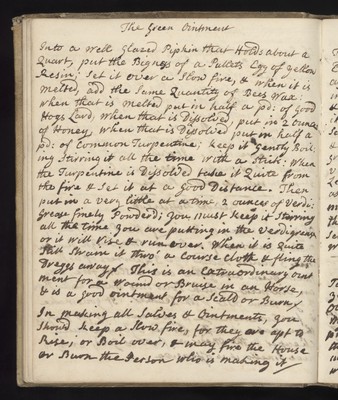 The Green Ointment
Into a well Glazed Pipkin that Holds about a
Quart, put the Bigness of a Pullets Egg of yellow
Resin; Set it over a Slow fire, & when it is
melted, add the Same Quantity of Bees Wax:
when that is melted put in half a pd: of good
Hogs Lard, when that is Dissolved, put in 2 ounces
of Honey, when that is Dissolved put in half a
pd: of Common Turpentine; keep it Gently Boil:
ing Stirring it all the time with a Stick: When
the Turpentine is Dissolved take it Quite from
the fire & Set it at a good Distance. Then
put in a very little at a time 2 ounces of Verdi:
Grease finely Powderd; you must keep it Stirring
all the time you are putting in the Verdigrease
or it will Rise & run over. When it is Quite
Still Strain it thro' a Course cloth & fling the
Dreggs away. This is an Extraordinary oint
ment for a wound or Bruise in an Horse,
& is a good ointment for a Scald or Burn
In making all Salves & Ointments, you
Should keep a Slow fire, for they are apt to
Rise, or Boil over, & may fire the House
or Burn the Person who is making it